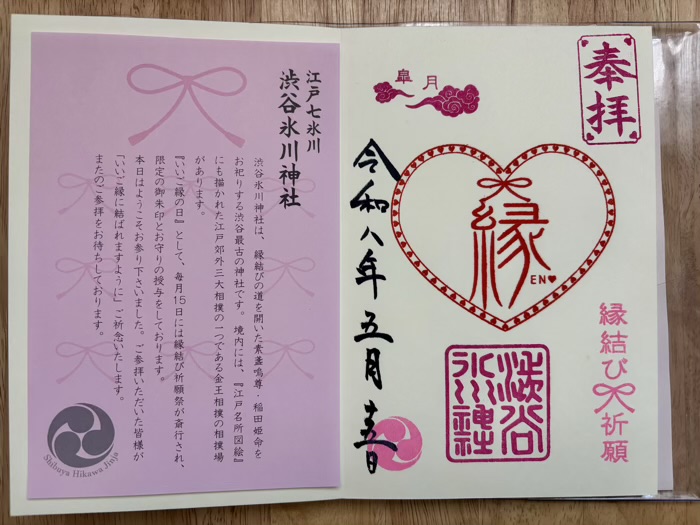 江戸七氷川
渋谷氷川神社
渋谷氷川神社は、縁結びの道を開いた素盞嗚尊・稲田姫命を
お祀りする渋谷最古の神社です。境内には、『江戸名所図絵』
にも描かれた江戸郊外三大相撲の一つである金王相撲の相撲場
があります。
『いいご縁の日』として、毎月15日には縁結び祈願祭が斎行され、
限定の御朱印とお守りの授与をしております。
本日はようこそお参り下さいました。ご参拝いただいた皆様が
「いいご縁に結ばれますように」ご祈念いたします。
またのご参拝をお待ちしております。
Shibuya Hikawa Jinja
奉拝
皐月
縁
EN
縁結び祈願
渋谷
氷川神社
令和八年五月十五日